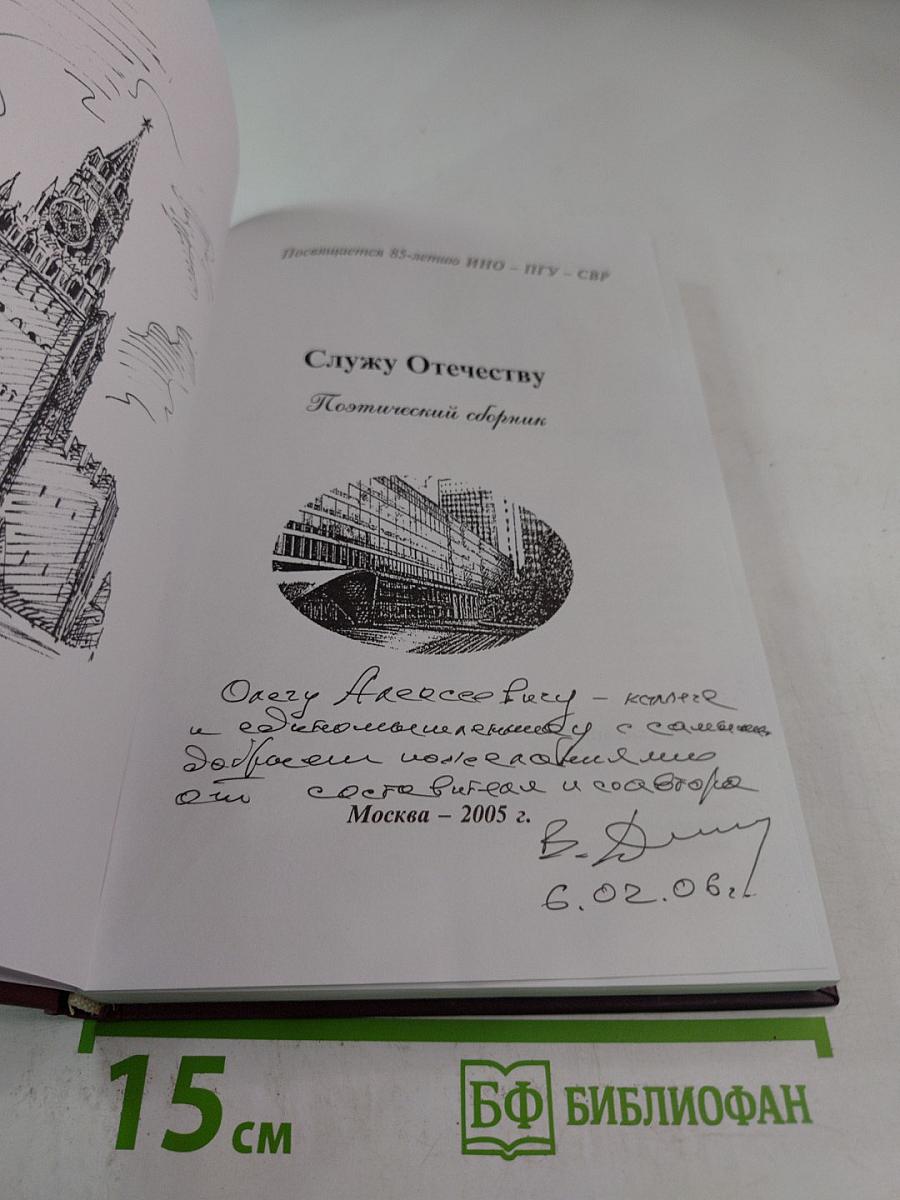 Посвящается 85-летию ИНО – ПГУ – СВР
Служу Отечеству
Поэтический сборник
Олегу Алексеевичу – коллеге
и единомышленнику с самыми
добрыми пожеланиями
от составителя и соавтора
Москва – 2005 г.
В.
6.02.06 г.
15 см
БФ БИБЛИОФАН